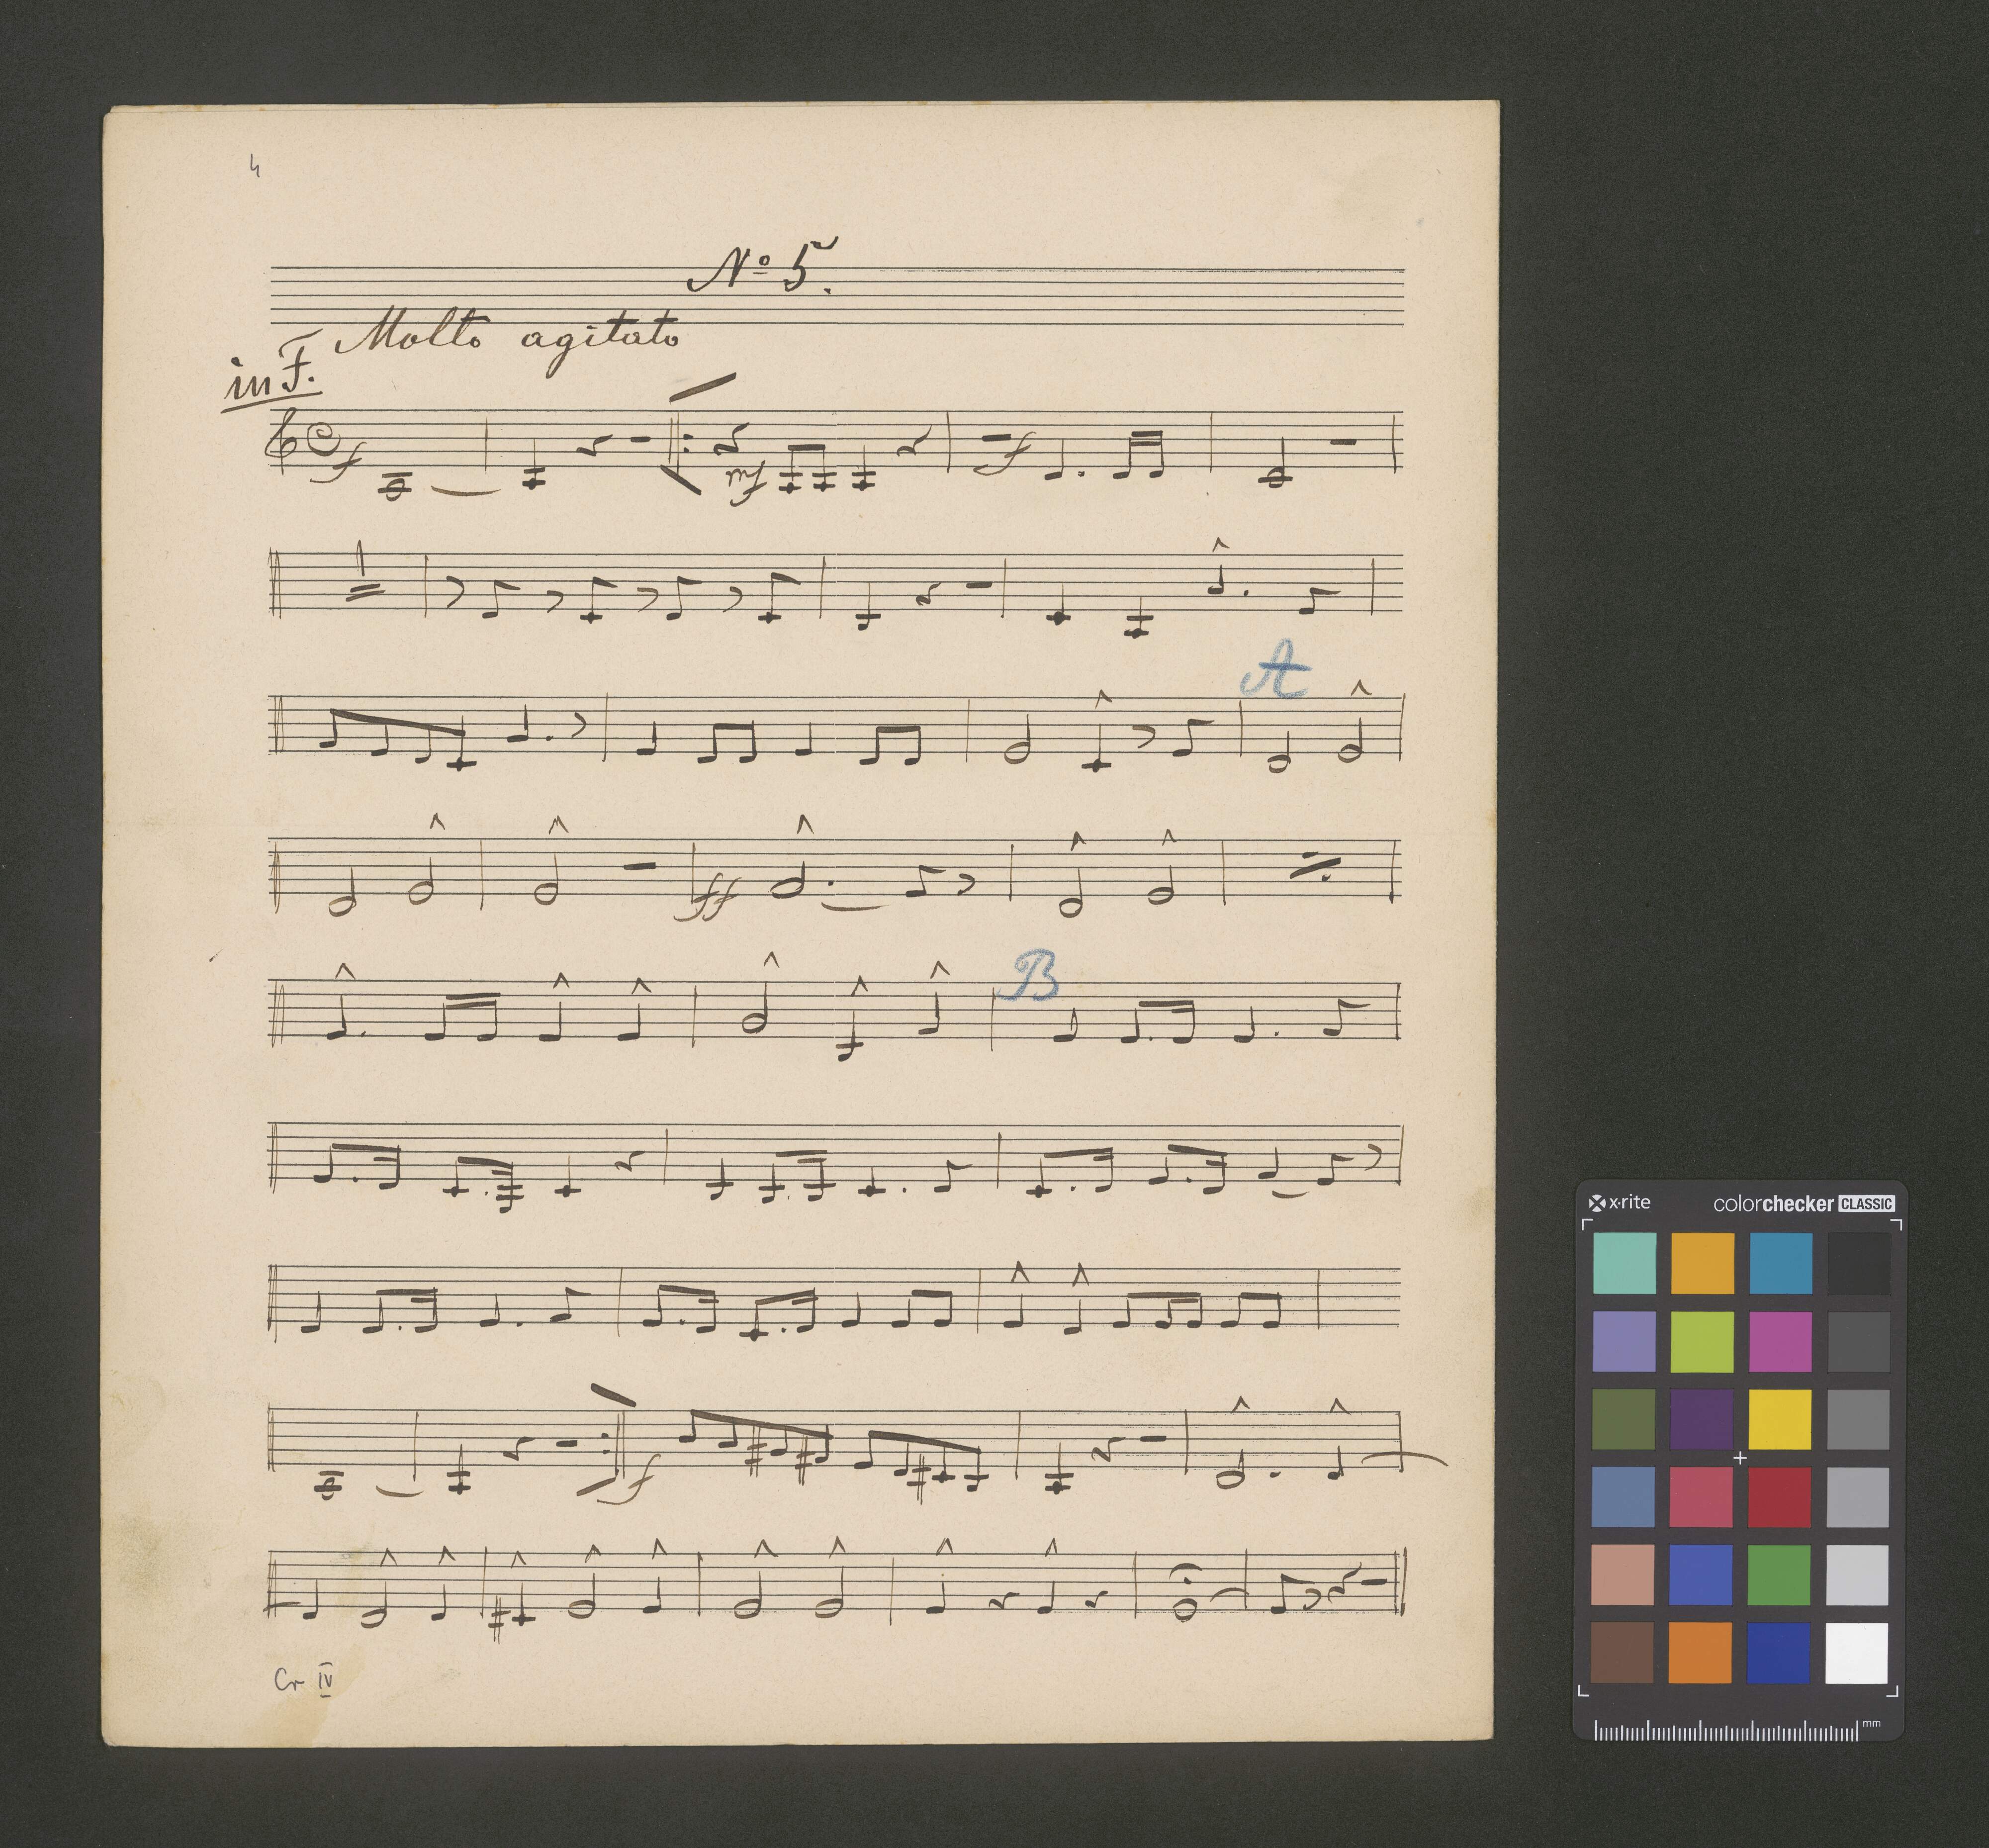 4
Nº 5.
Molto agitato
in F.
f
mf
f
A
ff
B
f
Cr IV
x·rite colorchecker CLASSIC
mm